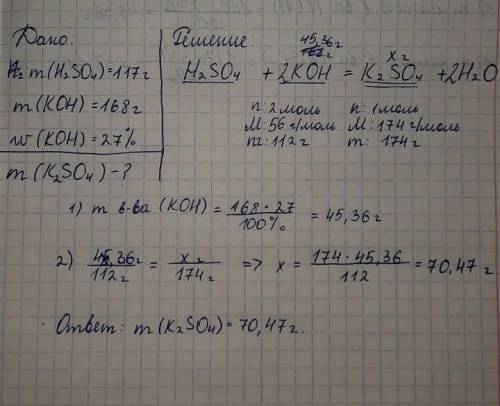 Дано:
m(H₂SO₄)=117г
m(KOH)=168г
w(KOH)=27%
m(K₂SO₄)-?
Решение:
45,36г
x г
H₂SO₄ + 2KOH = K₂SO₄ + 2H₂O
n: 2 моль n: 1 моль
M: 56 г/моль M: 174 г/моль
m: 112 г m: 174 г
1) m в-ва (KOH) = 168·27 / 100% = 45,36 г
2) 45,36 г / 112 г = x г / 174 г => x = 174·45,36 / 112 = 70,47 г
Ответ: m(K₂SO₄)=70,47 г.